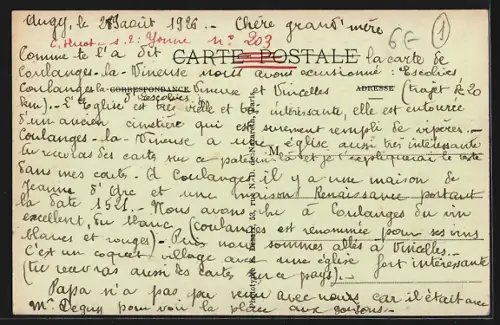 Augy, le 28 août 1926.- Chère grand'mère
6F 1
C. Huot - s. 2: Yonne n° 203
Comme te l'a dit CARTE POSTALE la carte de
Coulanges-la-Vineuse nous avons excursionné: Escolives
Coulanges-la-Vineuse et Vincelles (trajet de 20
CORRESPONDANCE ADRESSE
km).- L'Eglise d'Escolives est très vieille et très intéressante, elle est entourée
d'un ancien cimetière qui est sûrement rempli de vipères.-
Coulanges-la-Vineuse a une église aussi très intéressante
M
tu recevras des cartes sur ce patelin là et je t'expliquerai le reste
dans mes cartes. A Coulanges il y a une maison de
Jeanne d'Arc et une maison Renaissance portant
la date 1521.- Nous avons bu à Coulanges du vin
excellent, du blanc (Coulanges est renommée pour ses vins
blancs et rouges).- Puis nous sommes allés à Vincelles.
C'est un coquet village avec une église fort intéressante
(tu recevras aussi les cartes de ce pays).-
Papa n'a pas pu venir avec nous car il était avec
Mr Peguy pour voir la place aux goujons.-